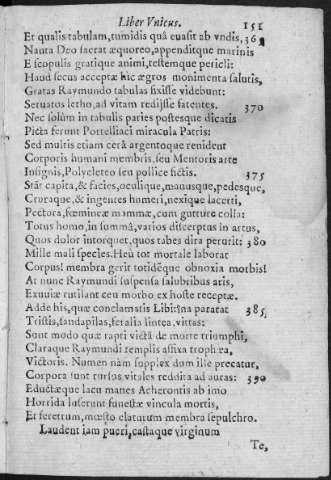 Liber Vnicus. 151
Et qualis tabulam, tumidis quã euasit ab vndis, 365
Nauta Deo sacrat æquoreo, appenditque marinis
E scopulis gratique animi, testemque pericli:
Haud secus acceptæ hic ægros monimenta salutis,
Gratas Raymundo tabulas fixisse videbunt:
Seruatos letho, ad vitam redijsse fatentes. 370
Nec solùm in tabulis paries postesque dicatis
Picta ferunt Portelliaci miracula Patris:
Sed multis etiam cerâ argentoque renident
Corporis humani membris, seu Mentoris arte
Insignis, Polycleteo seu pollice fictis. 375
Stãt capita, & facies, oculique, manusque, pedesque,
Cruraque, & ingentes humeri, nexique lacerti,
Pectora, fœmineæ mammæ, cum gutture colla:
Totus homo, in summâ, varios discerptus in artus,
Quos dolor intorquet, quos tabes dira perurit: 380
Mille mali species. Heu tot mortale laborat
Corpus! membra gerit totidẽque obnoxia morbis!
At nunc Raymundi suspensa salubribus aris,
Exuuiæ rutilant ceu morbo ex hoste receptæ.
Adde his, quæ conclamatis Libitina paratat 385
Tristis, sandapilas, feralia lintea, vittas:
Sunt modo quæ rapti victâ de morte triumphi,
Claraque Raymundi templis affixa trophæa,
Victoris. Numen nàm supplex dum ille precatur,
Corpora sunt rursus vitales reddita ad auras: 390
Eductæque lacu manes Acherontis ab imo
Horrida luserunt funestæ vincula mortis,
Et feretrum, mœsto elaturum membra sepulchro.
Laudent iam pueri, castaque virginum
Te,